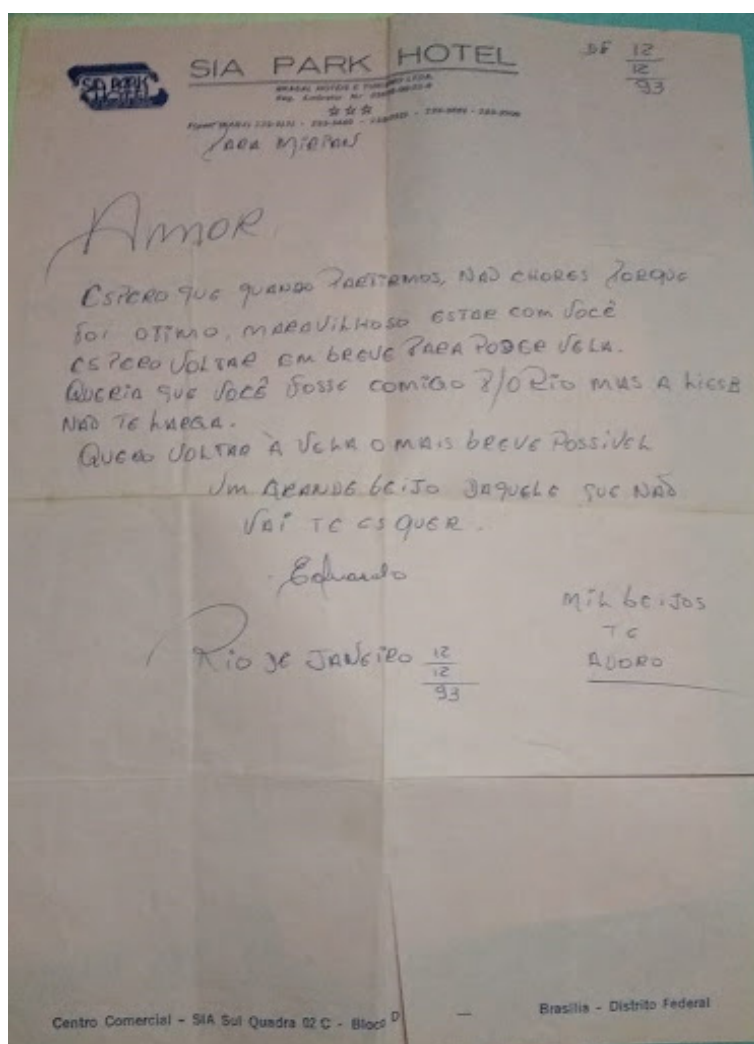 SIA PARK HOTEL
SIA PARK HOTEL
DE 12
12
93
BRASAL HOTÉIS E TURISMO LTDA.
PARA MIRIAN
AMOR,
ESPERO QUE QUANDO PARTIRMOS, NÃO CHORES PORQUE
FOI OTIMO, MARAVILHOSO ESTAR COM VOCÊ
ESPERO VOLTAR EM BREVE PARA PODER VELA.
QUERIA QUE VOCÊ FOSSE COMIGO P/O RIO MAS A
NÃO TE LARGA.
QUERO VOLTAR À VELA O MAIS BREVE POSSIVEL
UM GRANDE BEIJO DAQUELE QUE NÃO
VAI TE ESQUER.
Eduardo
MIL BEIJOS
TE
ADORO
RIO DE JANEIRO 12
12
93
Centro Comercial - SIA Sul Quadra 02 C - Bloco D — Brasília - Distrito Federal